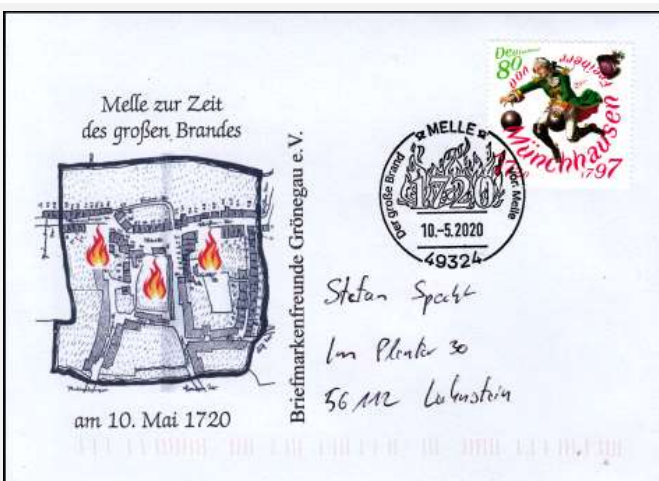 Melle zur Zeit
des großen Brandes
am 10. Mai 1720
Briefmarkenfreunde Grönegau e. V.
MELLE
Der große Brand von Melle
1720
10.-5.2020
49324
80
Freiherr von
Münchhausen
1797
Stefan
Im 30
56112 Lahnstein